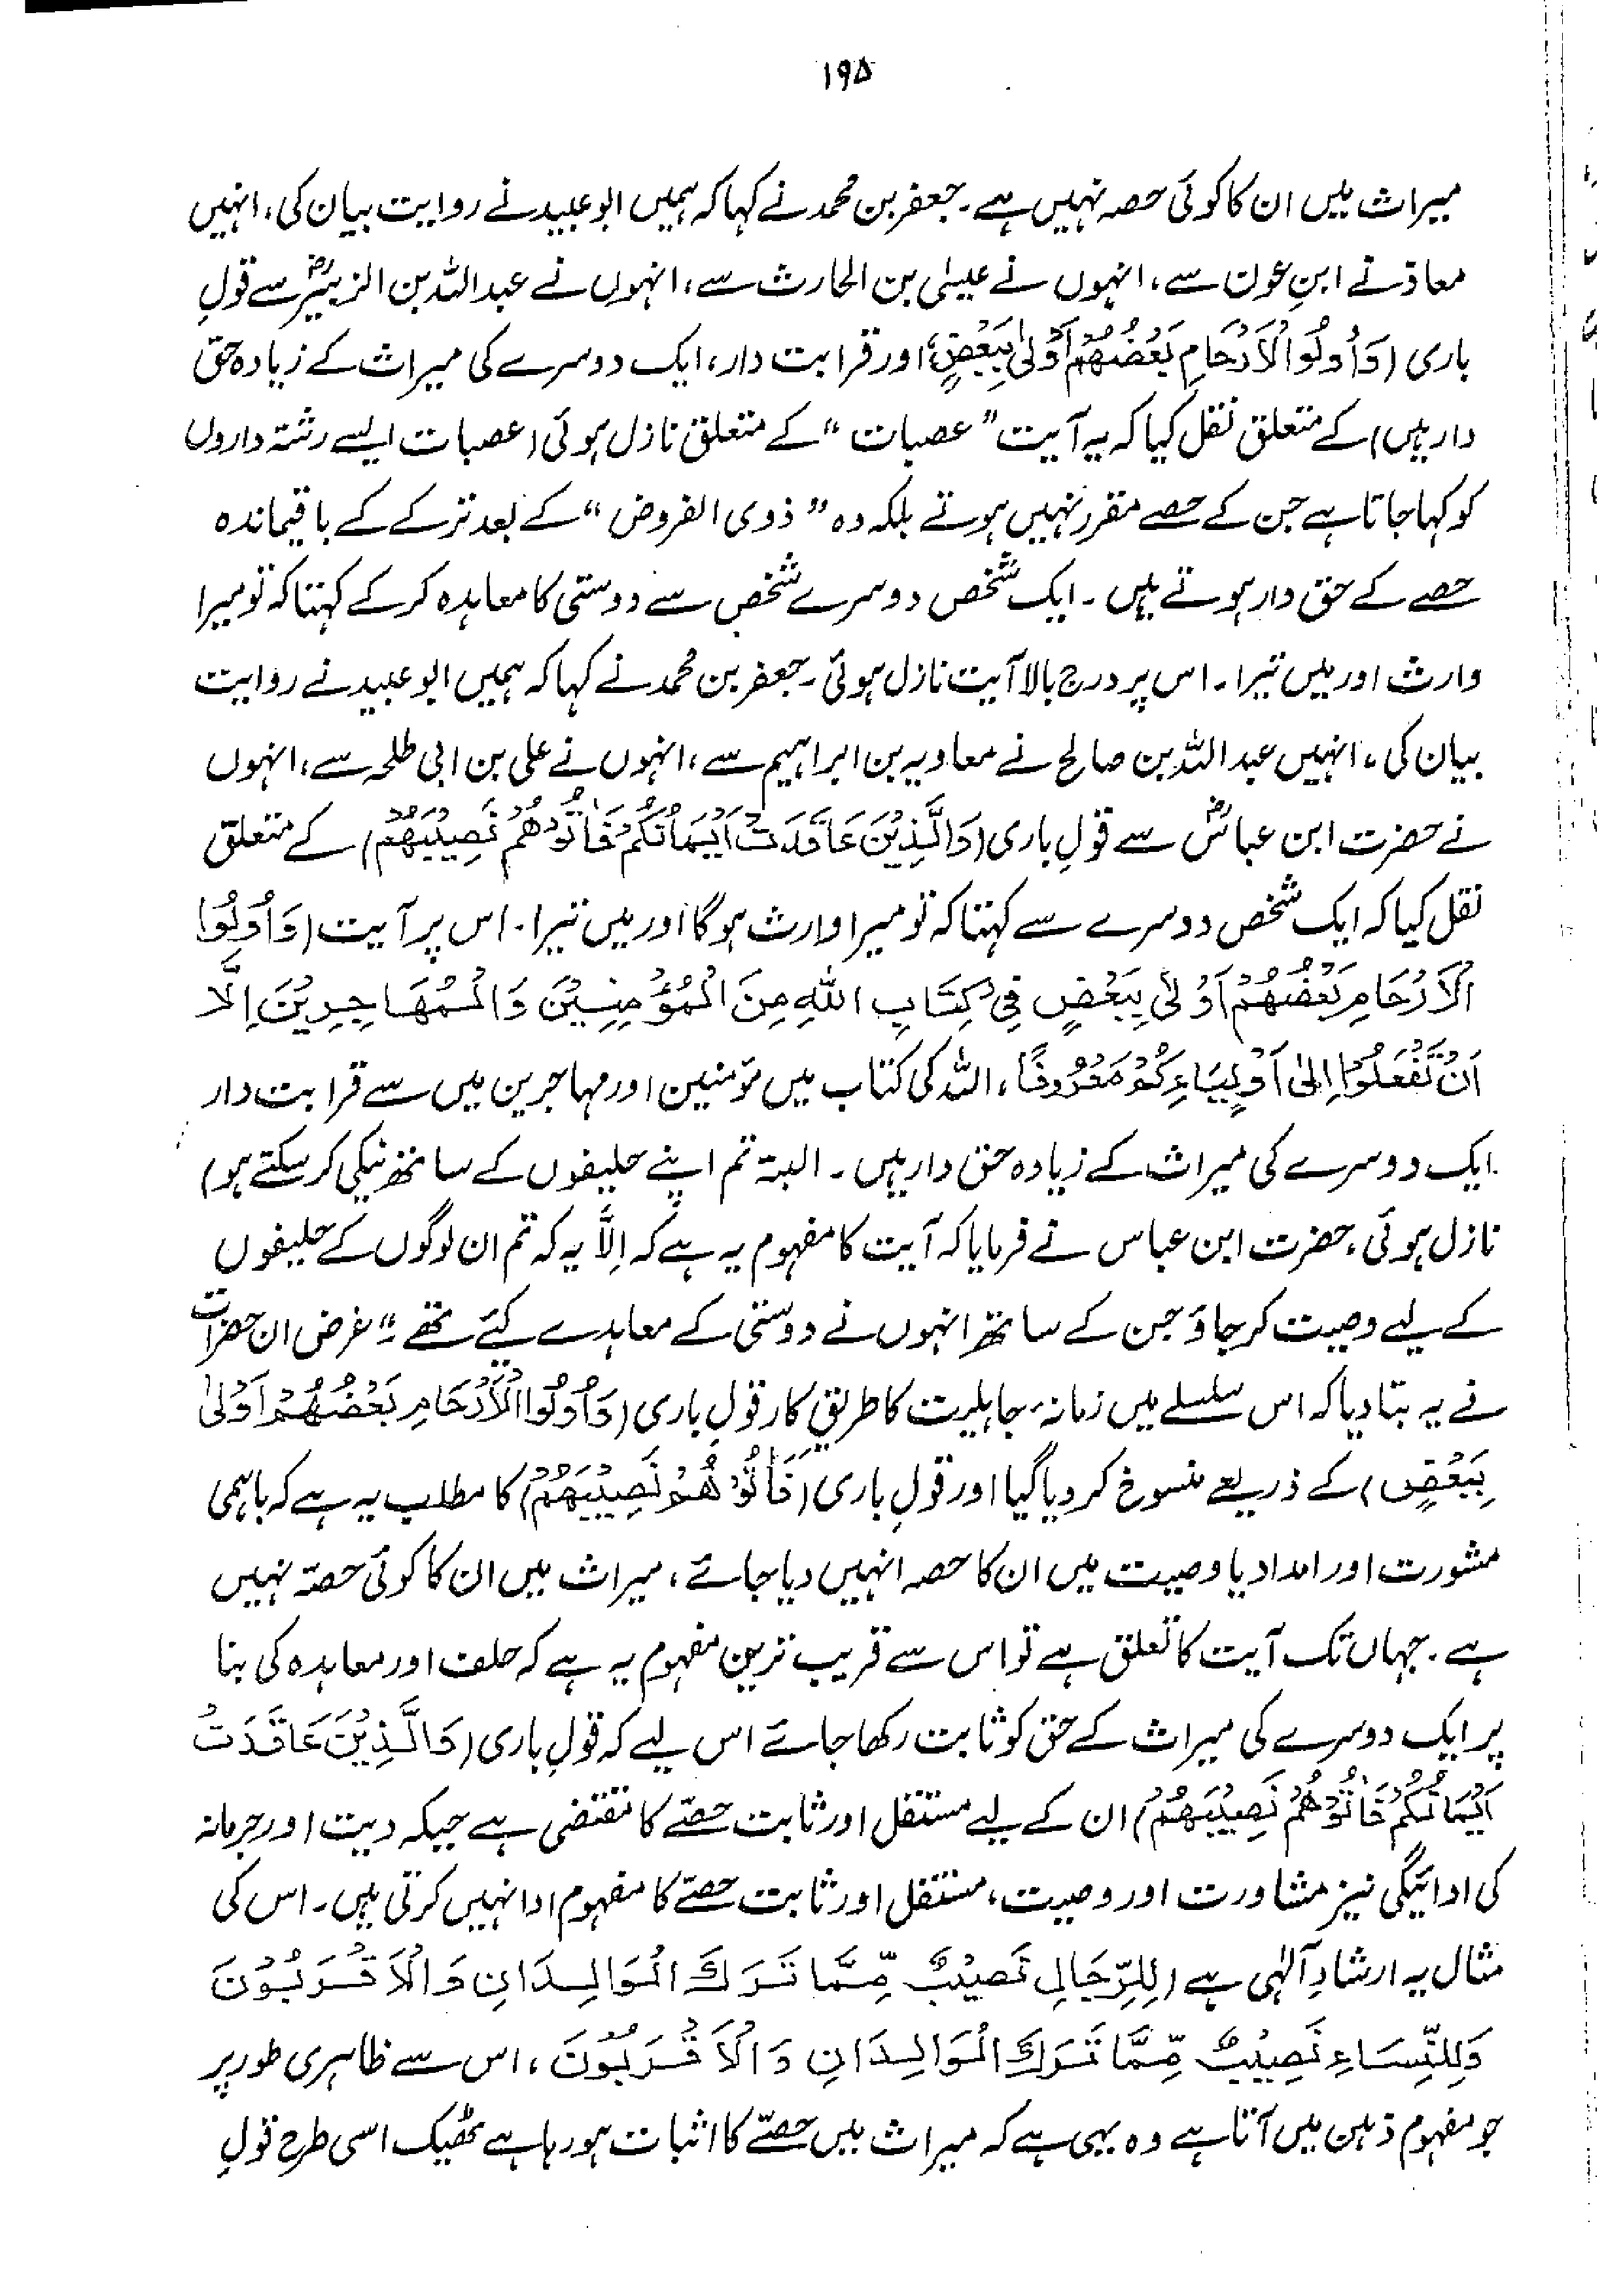 ۱۹۵
میراث میں ان کا کوئی حصہ نہیں ہے۔ جعفر بن محمد نے کہا کہ ہمیں ابو عبید نے روایت بیان کی، انہیں
معاذ نے ابنِ عون سے، انہوں نے عیسیٰ بن الحارث سے، انہوں نے عبداللہ بن الزبیرؓ سے قولِ
باری (وَاُولُوا الْاَرْحَامِ بَعْضُهُمْ اَوْلٰى بِبَعْضٍ، اور قرابت دار، ایک دوسرے کی میراث کے زیادہ حق
دار ہیں) کے متعلق نقل کیا کہ یہ آیت "عصبات" کے متعلق نازل ہوئی (عصبات ایسے رشتہ داروں
کو کہا جاتا ہے جن کے حصے مقرر نہیں ہوتے بلکہ وہ "ذوی الفروض" کے بعد ترکے کے باقیماندہ
حصے کے حق دار ہوتے ہیں۔ ایک شخص دوسرے شخص سے دوستی کا معاہدہ کرکے کہتا کہ تو میرا
وارث اور میں تیرا۔ اس پر درج بالا آیت نازل ہوئی۔ جعفر بن محمد نے کہا کہ ہمیں ابو عبید نے روایت
بیان کی، انہیں عبداللہ بن صالح نے معاویہ بن ابراہیم سے، انہوں نے علی بن ابی طلحہ سے، انہوں
نے حضرت ابن عباسؓ سے قولِ باری (وَالَّذِيْنَ عَاقَدَتْ اَيْمَانُكُمْ فَاٰتُوْهُمْ نَصِيْبَهُمْ) کے متعلق
نقل کیا کہ ایک شخص دوسرے سے کہتا کہ تو میرا وارث ہوگا اور میں تیرا۔ اس پر آیت (وَاُولُوا
الْاَرْحَامِ بَعْضُهُمْ اَوْلٰى بِبَعْضٍ فِيْ كِتَابِ اللّٰهِ مِنَ الْمُؤْمِنِيْنَ وَالْمُهَاجِرِيْنَ اِلَّا
اَنْ تَفْعَلُوْا اِلٰى اَوْلِيَاءِكُمْ مَعْرُوْفًا، اللہ کی کتاب میں مؤمنین اور مہاجرین میں سے قرابت دار
ایک دوسرے کی میراث کے زیادہ حق دار ہیں۔ البتہ تم اپنے حلیفوں کے ساتھ نیکی کر سکتے ہو)
نازل ہوئی، حضرت ابن عباس نے فرمایا کہ آیت کا مفہوم یہ ہے کہ اِلَّا یہ کہ تم ان لوگوں کے حلیفوں
کے لیے وصیت کر جاؤ جن کے ساتھ انہوں نے دوستی کے معاہدے کیئے تھے۔" غرض ان حضرات
نے یہ بتا دیا کہ اس سلسلے میں زمانۂ جاہلیت کا طریقِ کار قولِ باری (وَاُولُوا الْاَرْحَامِ بَعْضُهُمْ اَوْلٰى
بِبَعْضٍ) کے ذریعے منسوخ کر دیا گیا اور قولِ باری (فَاٰتُوْهُمْ نَصِيْبَهُمْ) کا مطلب یہ ہے کہ باہمی
مشورت اور امداد یا وصیت میں ان کا حصہ انہیں دیا جائے، میراث میں ان کا کوئی حصّہ نہیں
ہے۔ جہاں تک آیت کا تعلق ہے تو اس سے قریب ترین مفہوم یہ ہے کہ حلف اور معاہدہ کی بنا
پر ایک دوسرے کی میراث کے حق کو ثابت رکھا جائے اس لیے کہ قولِ باری (وَالَّذِيْنَ عَاقَدَتْ
اَيْمَانُكُمْ فَاٰتُوْهُمْ نَصِيْبَهُمْ) ان کے لیے مستقل اور ثابت حصّے کا مقتضی ہے جبکہ دیت اور جرمانہ
کی ادائیگی نیز مشاورت اور وصیت، مستقل اور ثابت حصّے کا مفہوم ادا نہیں کرتی ہیں۔ اس کی
مثال یہ ارشادِ الٰہی ہے (لِلرِّجَالِ نَصِيْبٌ مِّمَّا تَرَكَ الْوَالِدَانِ وَالْاَقْرَبُوْنَ
وَلِلنِّسَاءِ نَصِيْبٌ مِّمَّا تَرَكَ الْوَالِدَانِ وَالْاَقْرَبُوْنَ، اس سے ظاہری طور پر
جو مفہوم ذہن میں آتا ہے وہ یہی ہے کہ میراث میں حصّے کا اثبات ہو رہا ہے ٹھیک اسی طرح قولِ